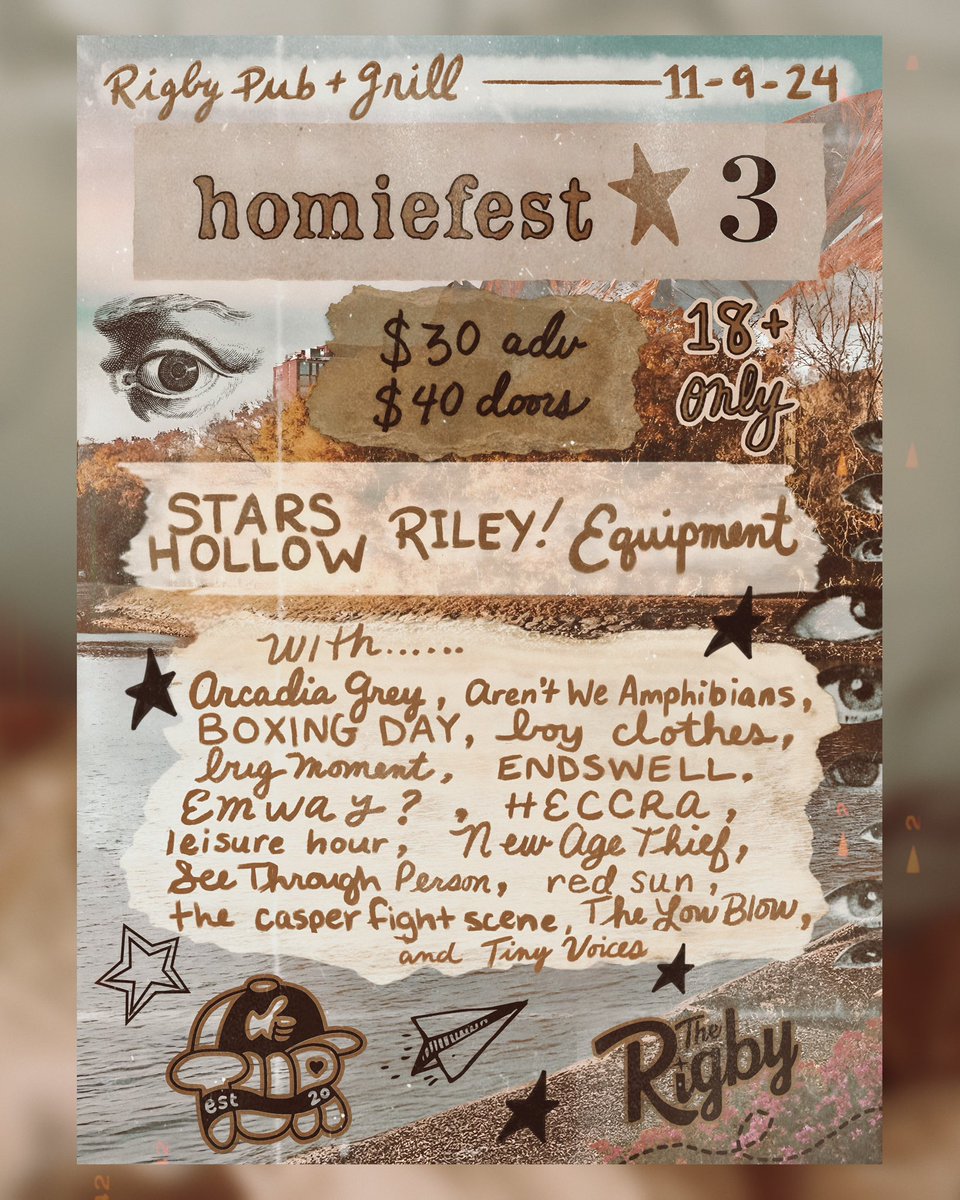 Rigby Pub + Grill 11-9-24
homiefest 3
$30 adv
$40 doors
18+
only
STARS
HOLLOW
RILEY!
Equipment
with......
Arcadia Grey, Aren't We Amphibians,
BOXING DAY, boy clothes,
bug moment, ENDSWELL,
Emway?, HECCRA,
leisure hour, New Age Thief,
See Through Person, red sun,
the casper fight scene, The Low Blow,
and Tiny Voices
est 20
The
Rigby